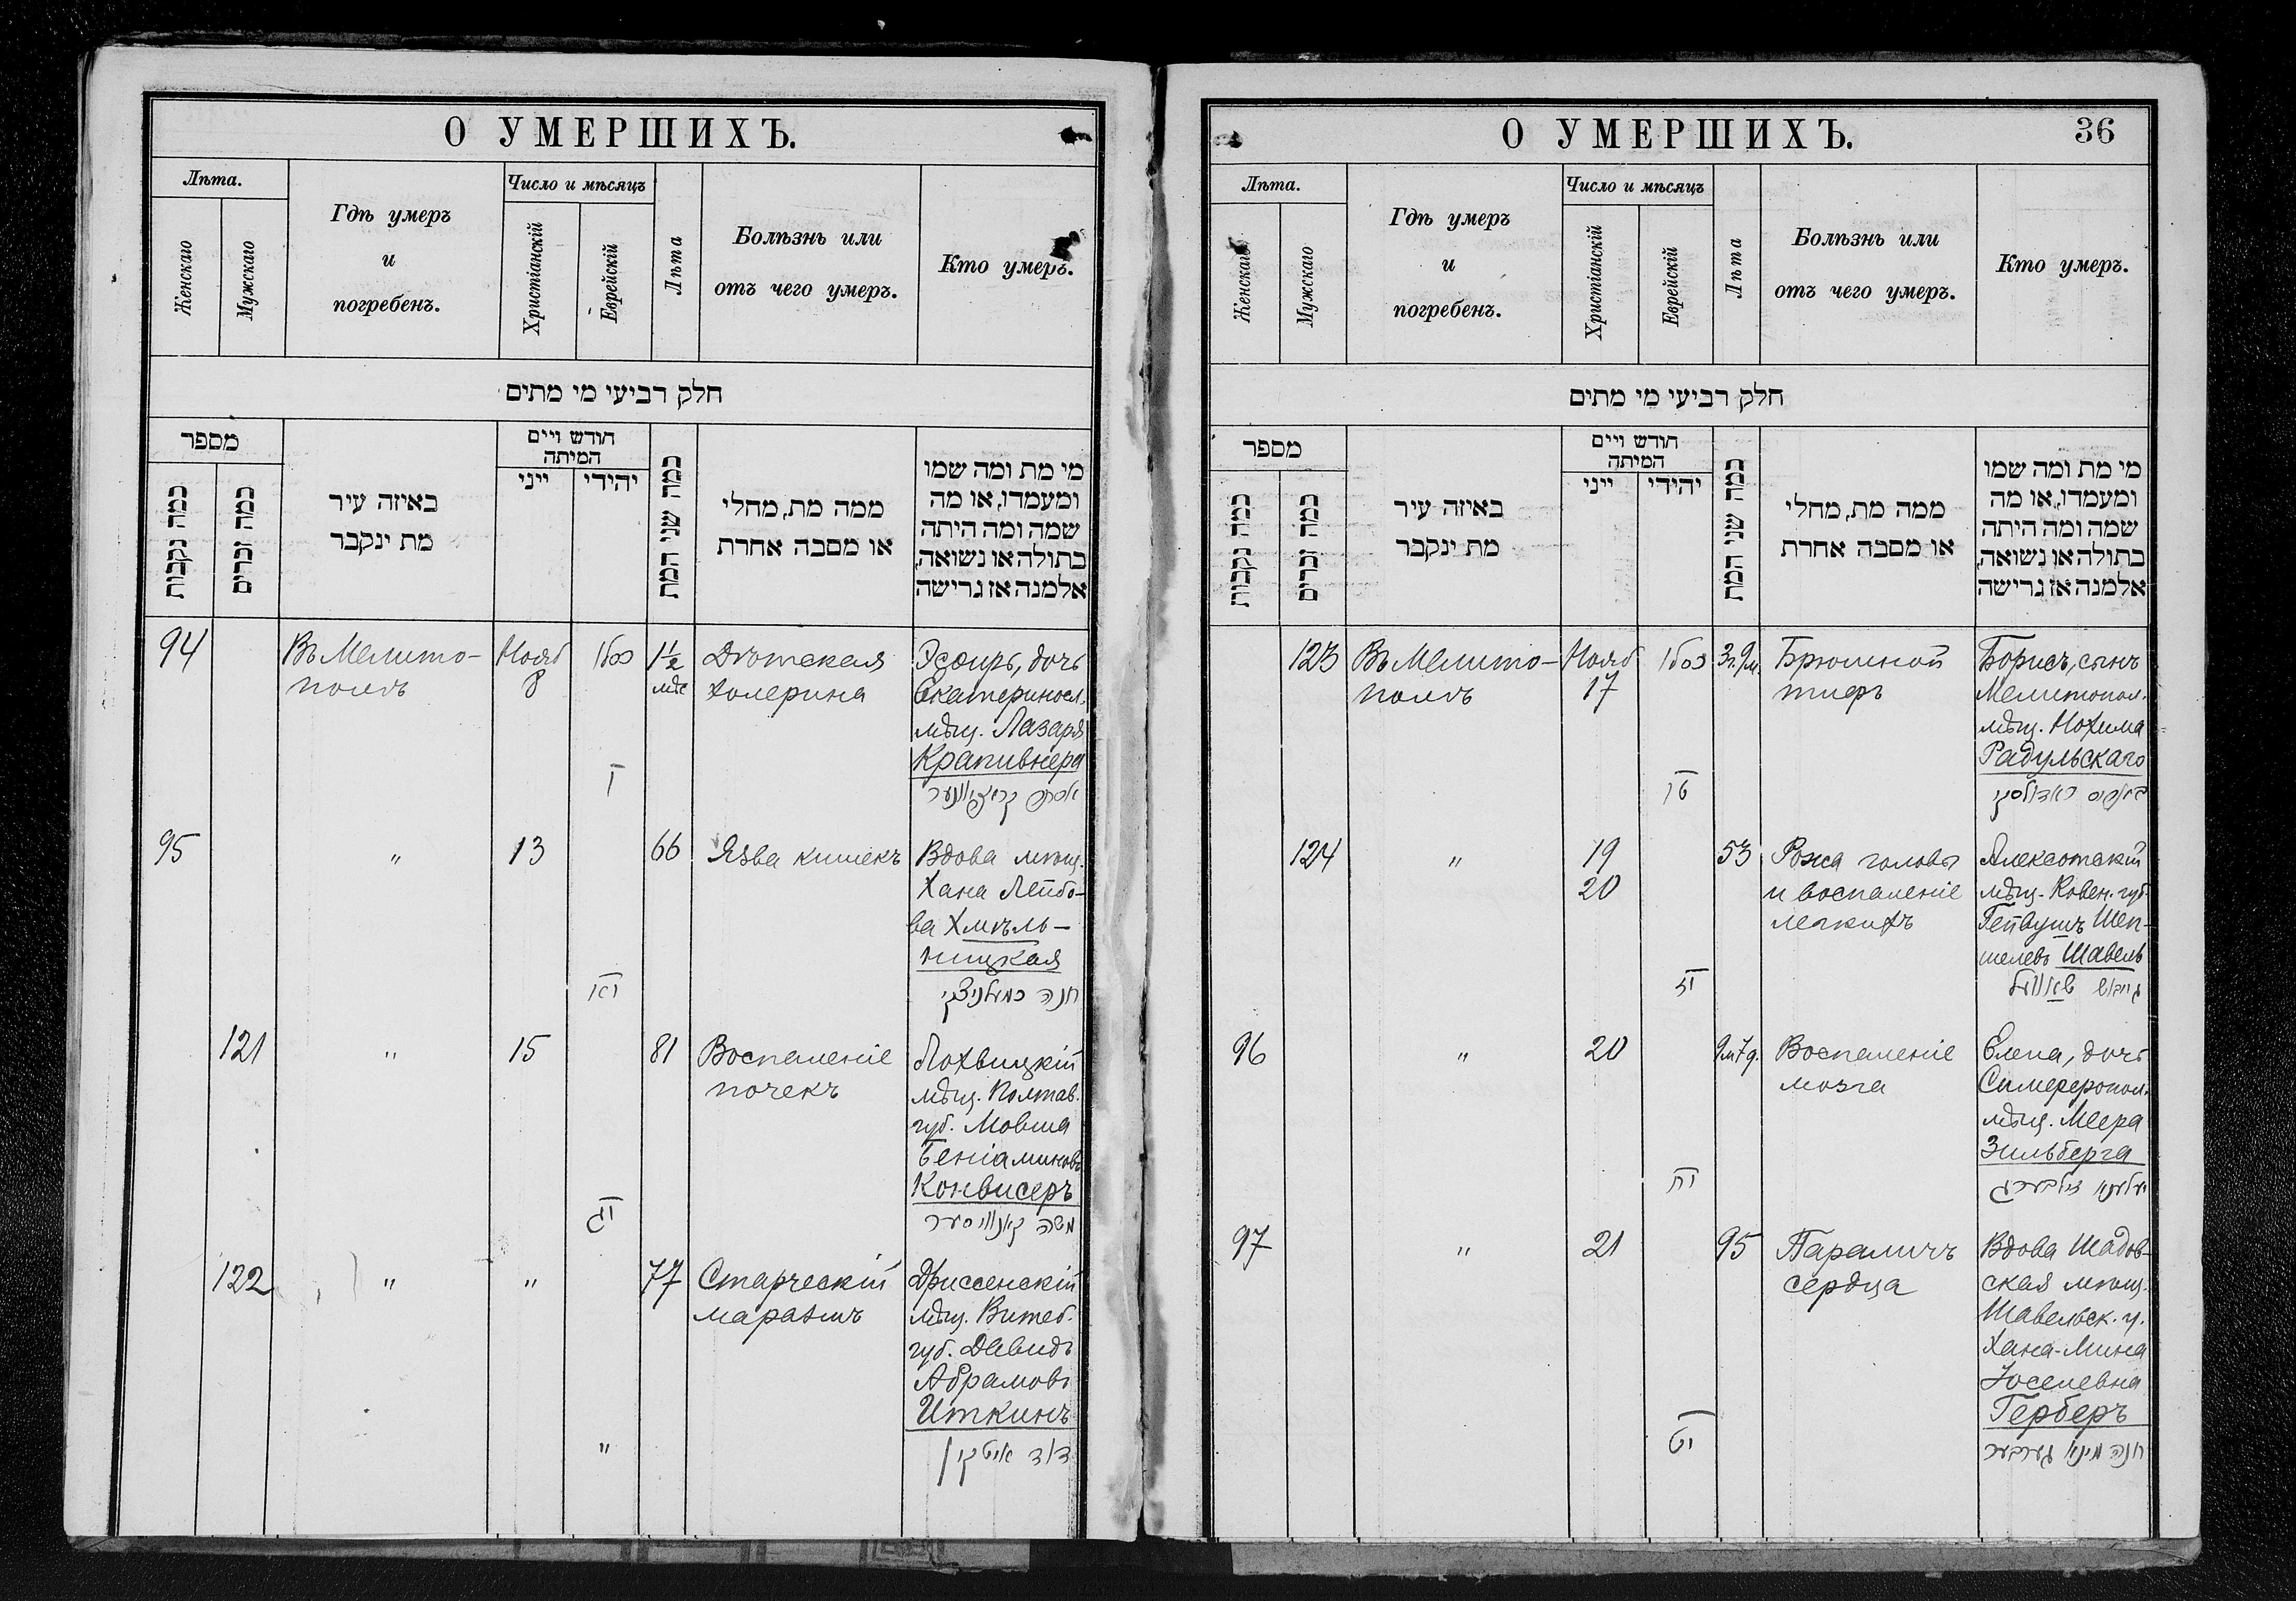 О УМЕРШИХЪ.
Лѣта.
Женскаго
Мужскаго
Гдѣ умеръ
и
погребенъ.
Число и мѣсяцъ
Христіанскій
Еврейскій
Лѣта
Болѣзнь или
отъ чего умеръ.
Кто умеръ.
חלק רביעי מי מתים
מספר
כמה נקבות
כמה זכרים
באיזה עיר
מת ינקבר
חודש ויים
המיתה
ייני
יהידי
כמה שני המת
ממה מת, מחלי
או מסבה אחרת
מי מת ומה שמו
ומעמדו, או מה
שמה ומה היתה
בתולה או נשואה,
אלמנה אז גרישה
94
Въ Мелито-
полѣ
Нояб
8
1½
Дѣтская
холерина
Эсѳирь, дочь
Екатериносл.
мѣщ. Лазаря
Крапивнера
95
"
13
66
Язва кишекъ
Вдова мѣщ.
Хана Лейбо-
ва Хмѣль-
ницкая
חנה כמעלניצקי
121
"
15
81
Воспаленіе
почекъ
Лохвицкій
мѣщ. Полтав.
губ. Мовша
Беніаминовъ
Конвисеръ
יג
משה קאנוויסער
122
"
"
77
Старческій
маразмъ
Дриссенскій
мѣщ. Витеб.
губ. Давидъ
Абрамовъ
Иткинъ
"
דוד איטקין
О УМЕРШИХЪ.
36
Лѣта.
Женскаго
Мужскаго
Гдѣ умеръ
и
погребенъ.
Число и мѣсяцъ
Христіанскій
Еврейскій
Лѣта
Болѣзнь или
отъ чего умеръ.
Кто умеръ.
חלק רביעי מי מתים
מספר
כמה נקבות
כמה זכרים
באיזה עיר
מת ינקבר
חודש ויים
המיתה
ייני
יהידי
כמה שני המת
ממה מת, מחלי
או מסבה אחרת
מי מת ומה שמו
ומעמדו, או מה
שמה ומה היתה
בתולה או נשואה,
אלמנה אז גרישה
123
Въ Мелито-
полѣ
Нояб
17
3г. 9м.
Брюшной
тифъ
Борисъ, сынъ
Мелитопол.
мѣщ. Нохима
Радульскаго
טו
124
"
19
20
53
Рожа головы
и воспаленіе
легкихъ
Алексотскій
мѣщ. Ковен. губ.
Гейвушъ Шеп-
шелевъ Шавель
96
"
20
9м 7д.
Воспаленіе
мозга
Елена, дочь
Симферопол.
мѣщ. Меера
Зильберга
יח
יעלענא זילבערג
97
"
21
95
Параличъ
сердца
Вдова Шадов-
ская мѣщ.
Шавельск. у.
Хана-Мина
Іоселевна
Герберъ
יט
חנה מינא גערבער